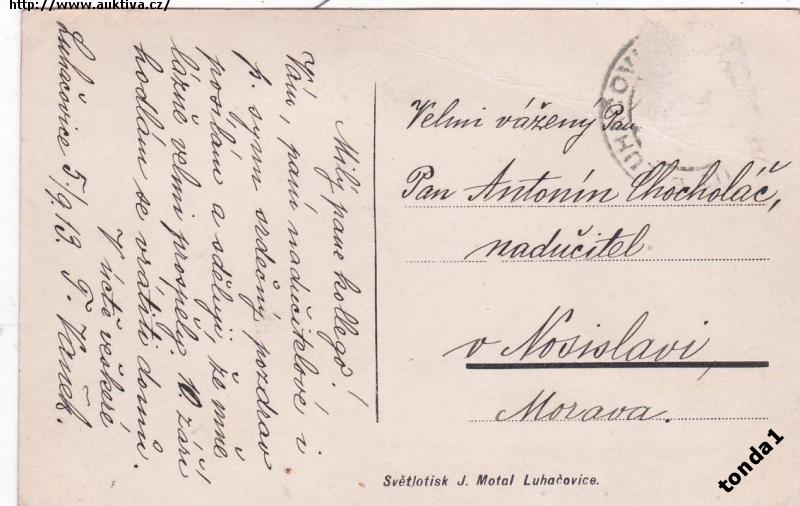 http://www.auktiva.cz/
Milý pane kollego!
Vám, paní nadučitelové i
p. synu srdečný pozdrav
posílám a sděluji, že mně
lázně velmi prospěly. 10. září
hodlám se vrátiti domů.
V úctě veškeré
Luhačovice 5/9. 13. F. Vaněk.
LUHAČOVI
Velmi vážený Pan
Pan Antonín Chocholáč,
nadučitel
v Nosislavi,
Morava.
Světlotisk J. Motal Luhačovice.
tonda1